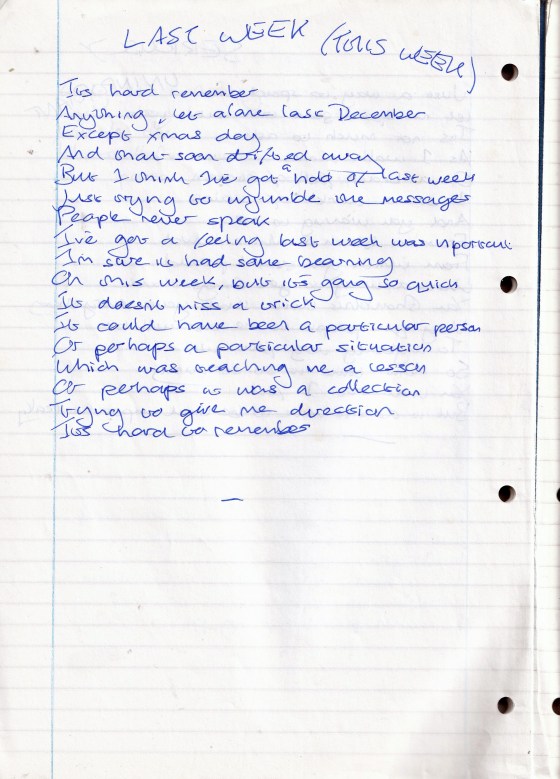 LAST WEEK (THIS WEEK)
Its hard remember
Anything, let alone last December
Except xmas day
And that soon drifted away
But I think I've got a hold of last week
Just trying to unjumble the messages
People never speak
I've got a feeling last week was important
I'm sure its had some bearning
On this week, but it's going so quick
It doesn't miss a trick
It could have been a particular person
Or perhaps a particular situation
Which was teaching me a lesson
Or perhaps it was a collection
Trying to give me direction
It's hard to remember
—